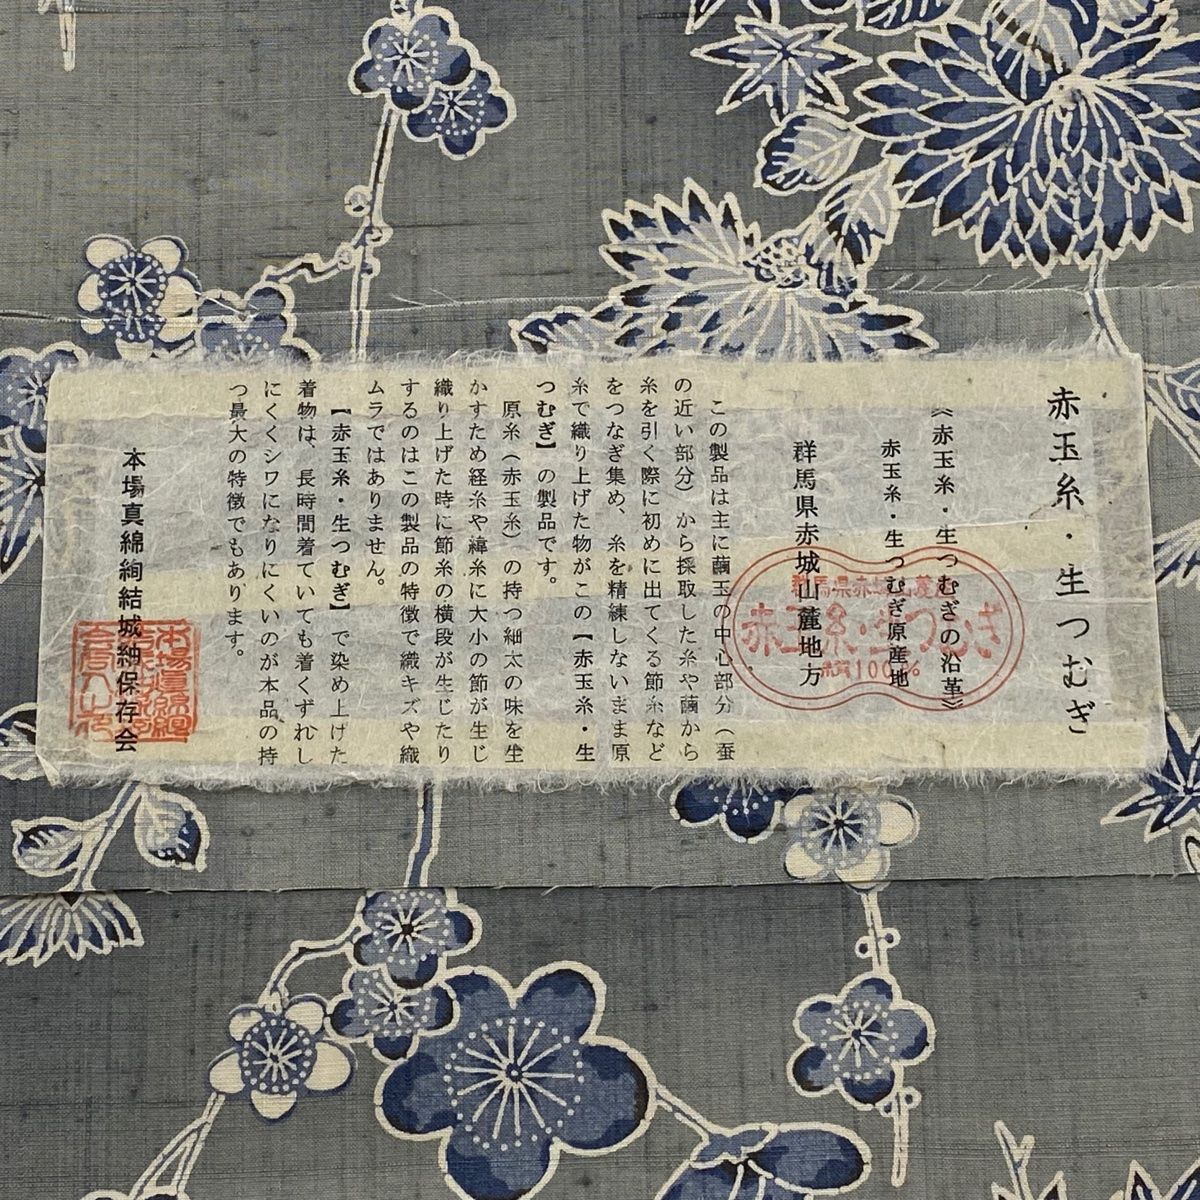 赤玉糸・生つむぎ
《赤玉糸・生つむぎの沿革》
赤玉糸・生つむぎ原産地
群馬県赤城山麓地方
この製品は主に繭玉の中心部分（蚕
の近い部分）から採取した糸や繭から
糸を引く際に初めに出てくる節糸など
をつなぎ集め、糸を精練しないまま原
糸で織り上げた物がこの【赤玉糸・生
つむぎ】の製品です。
原糸（赤玉糸）の持つ細太の味を生
かすため経糸や緯糸に大小の節が生じ
織り上げた時に節糸の横段が生じたり
するのはこの製品の特徴で織キズや織
ムラではありません。
【赤玉糸・生つむぎ】で染め上げた
着物は、長時間着ていても着くずれし
にくくシワになりにくいのが本品の持
つ最大の特徴でもあります。
本場真綿絢結城紬保存会
群馬県赤城山麓産
赤玉糸・生つむぎ
絹100%